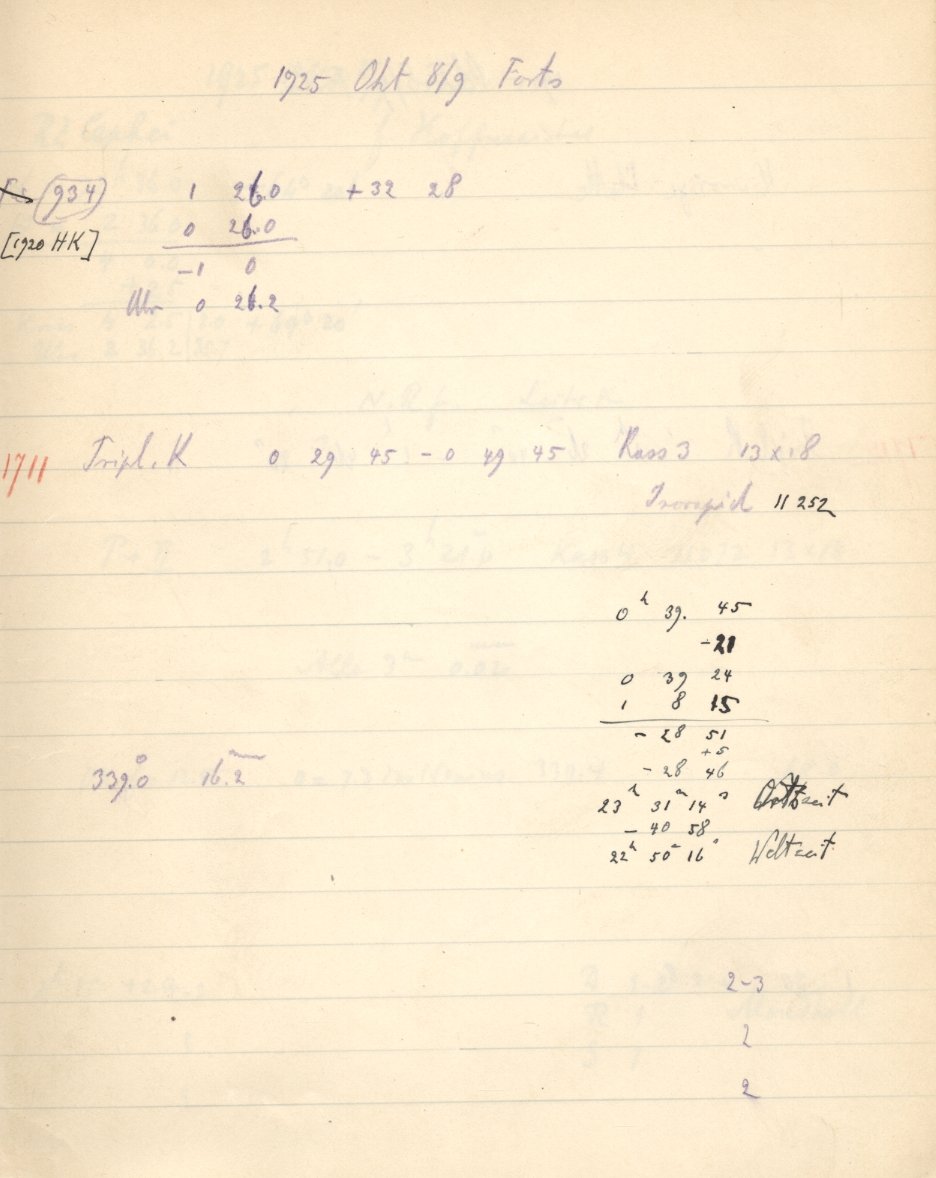 1925 Okt 8/9 Forts
(934) 1 26.0 +32 28
[1920 HK] 0 26.0
-1 0
Uhr 0 26.2
1711 Tripl. K 0 29 45 - 0 49 45 Kass 3 13x18
11 252
0h 39. 45
-21
0 39 24
1 8 15
- 28 51
+5
- 28 46
339.0 16.2
23h 31m 14s Ortszeit
- 40 58
22h 50m 16s Weltzeit
2-3
2
2